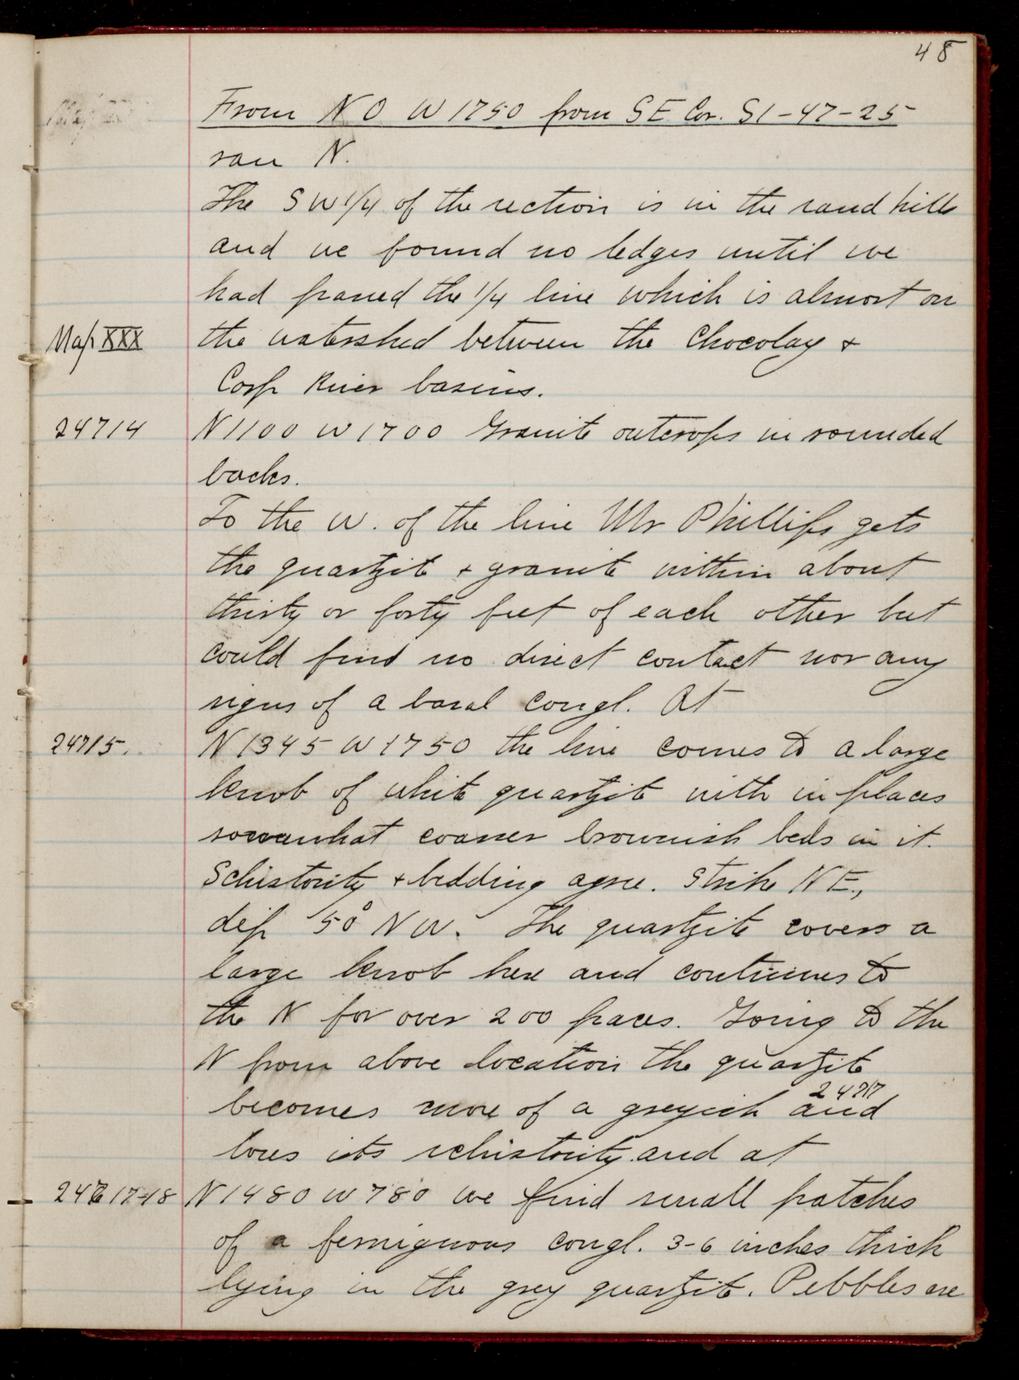 48
From N 0 W 1750 from SE Cor. S1-47-25
ran N.
The SW 1/4 of the section is in the sand hills
and we found no ledges until we
had passed the 1/4 line which is almost on
Map XXX the watershed between the Chocolay &
Carp River basins.
24714 N 1100 W 1700 Granite outcrops in rounded
backs.
To the W. of the line Mr Phillips gets
the quartzite & granite within about
thirty or forty feet of each other but
could find no direct contact nor any
signs of a basal congl. At
24715. N 1345 W 1750 the line comes to a large
knob of white quartzite with in places
somewhat coarser brownish beds in it.
Schistosity & bedding agree. Strike NE,
dip 50° NW. The quartzite covers a
large knob here and continues to
the N for over 200 paces. Going to the
N from above location the quartzite
24717
becomes more of a greyish and
loses its schistosity and at
17-18 N 1480 W 780 we find small patches
of a ferruginous congl. 3-6 inches thick
lying in the grey quartzite. Pebbles are